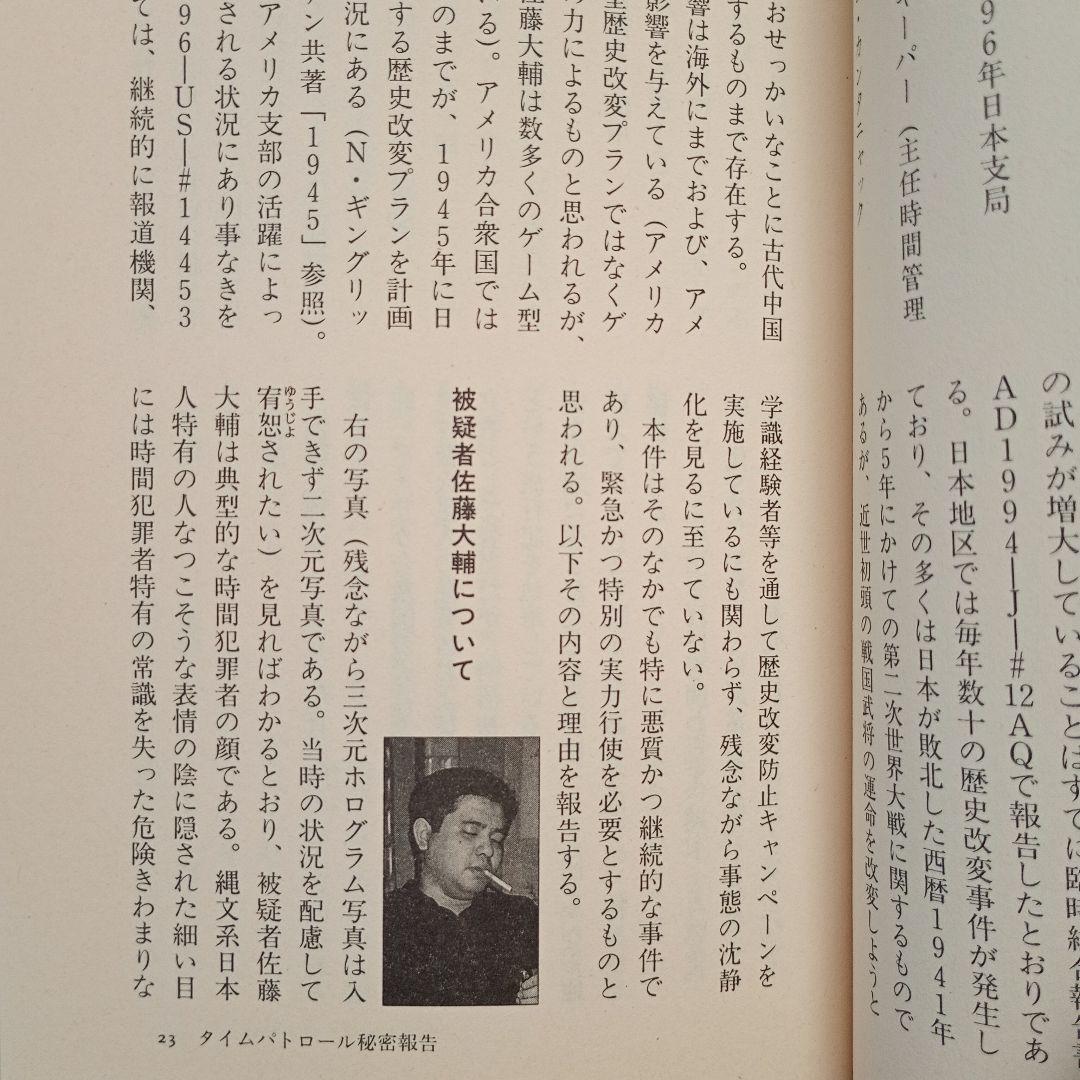 96年日本支局
ーパー（主任時間管理
の試みが増大していることはすでに臨時総合報告書
AD1994―J―#12AQで報告したとおりであ
る。日本地区では毎年数十の歴史改変事件が発生し
ており、その多くは日本が敗北した西暦1941年
から5年にかけての第二次世界大戦に関するもので
あるが、近世初頭の戦国武将の運命を改変しようと
おせっかいなことに古代中国
するものまで存在する。
響は海外にまでおよび、アメ
影響を与えている（アメリカ
歴史改変プランではなくゲ
の力によるものと思われるが、
佐藤大輔は数多くのゲーム型
る）。アメリカ合衆国では
のまでが、1945年に日
する歴史改変プランを計画
況にある（N・ギングリッ
ン共著「1945」参照）。
アメリカ支部の活躍によっ
される状況にあり事なきを
96―US―#1453
ては、継続的に報道機関、
学識経験者等を通して歴史改変防止キャンペーンを
実施しているにも関わらず、残念ながら事態の沈静
化を見るに至っていない。
本件はそのなかでも特に悪質かつ継続的な事件で
あり、緊急かつ特別の実力行使を必要とするものと
思われる。以下その内容と理由を報告する。
被疑者佐藤大輔について
右の写真（残念ながら三次元ホログラム写真は入
手できず二次元写真である。当時の状況を配慮して
宥恕されたい）を見ればわかるとおり、被疑者佐藤
ゆうじょ
大輔は典型的な時間犯罪者の顔である。縄文系日本
人特有の人なつこそうな表情の陰に隠された細い目
には時間犯罪者特有の常識を失った危険きわまりな
23 タイムパトロール秘密報告